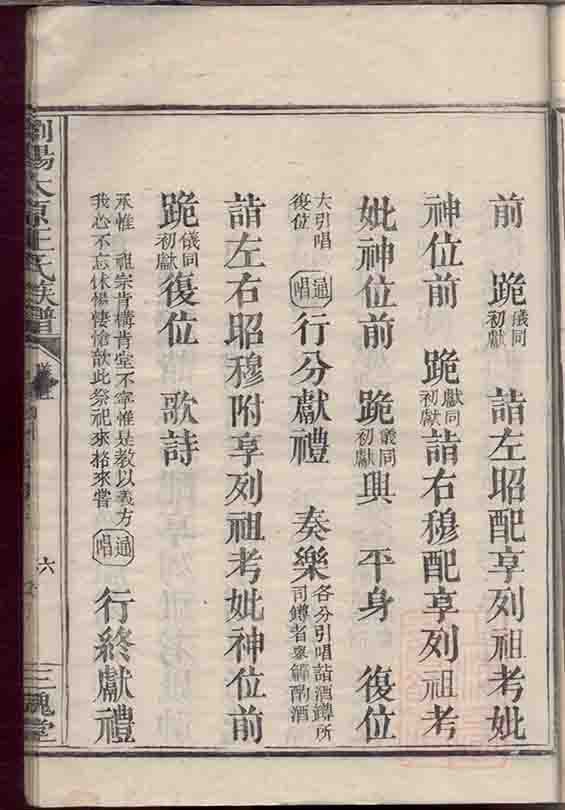 前 跪儀同初獻 詣左昭配享列祖考妣
神位前 跪獻同初獻 詣右穆配享列祖考
妣神位前 跪儀同初獻 興 平身 復位
大引唱復位 通唱 行分獻禮 奏樂 各分引唱詣酒罇所司罇者舉冪酌酒
詣左右昭穆附享列祖考妣神位前
跪儀同初獻 復位 歌詩
承惟 祖宗肯構肯堂不寧惟是教以義方我心不忘怵惕悽愴歆此祭祀來格來嘗 通唱 行終獻禮
瀏陽太原王氏族譜
六
三槐堂